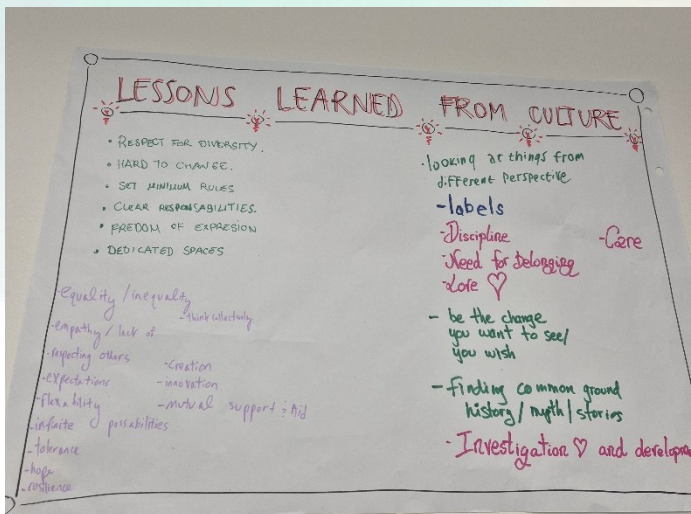 LESSONS LEARNED FROM CULTURE
• RESPECT FOR DIVERSITY.
• HARD TO CHANGE.
• SET MINIMUM RULES
• CLEAR RESPONSABILITIES.
• FREDOM OF EXPRESION
• DEDICATED SPACES
-equality / inequality
-think collectively
-empathy / lack of
-respecting others
-expectations
-flexability
-infinite possabilities
-tolerance
-hope
-resilience
-Creation
-innovation
-mutual support : Aid
•looking at things from
different perspective
-labels
-Discipline
-Care
-Need for Belonging
-Love ♡
- be the change
you want to see/
you wish
- finding common ground
history / myth / stories
- Investigation ♡ and